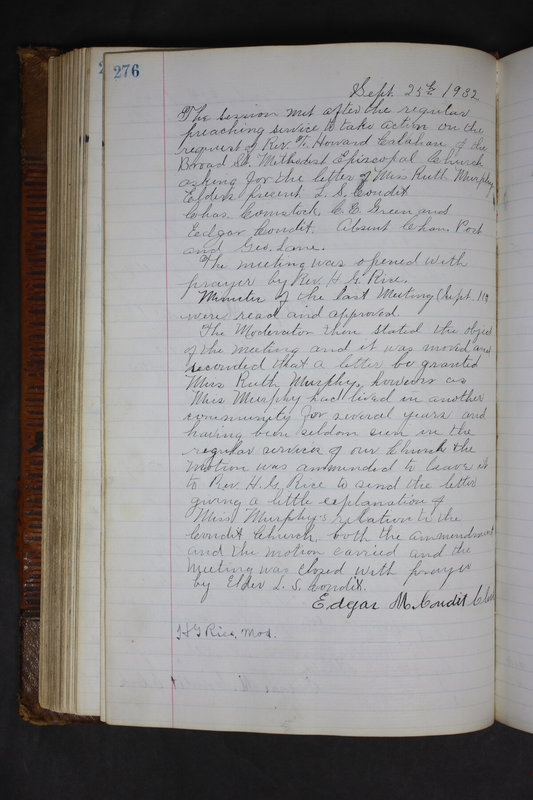 276
Sept. 25th 1932
The Session met after the regular
preaching service to take action on the
request of Rev. Howard Calahan of the
Broad St. Methodist Episcopal Church
asking for the letter of Miss Ruth Murphy
Elders present L. S. Condit
Chas. Comstock, C. E. Green and
Eedgar Condit. Absent Chan. Post
and Geo. Lane.
The meeting was opened with
prayer by Rev. H. G. Rice.
Minutes of the last Meeting (Sept. 11
were read and approved.
The Moderator then stated the object
of the meeting and it was moved and
seconded that a letter be granted
Miss Ruth Murphy, however as
Miss Murphy had lived in another
community for several years and
having been seldom seen in the
regular services of our Church the
motion was ammended to leave it
to Rev. H. G. Rice to send the letter
giving a little explanation of
Miss Murphys relation to the
Condit Church, both the ammendment
and the motion carried and the
meeting was closed with prayer
by Elder L. S. Condit.
Edgar M. Condit
H G Rice, Mod.